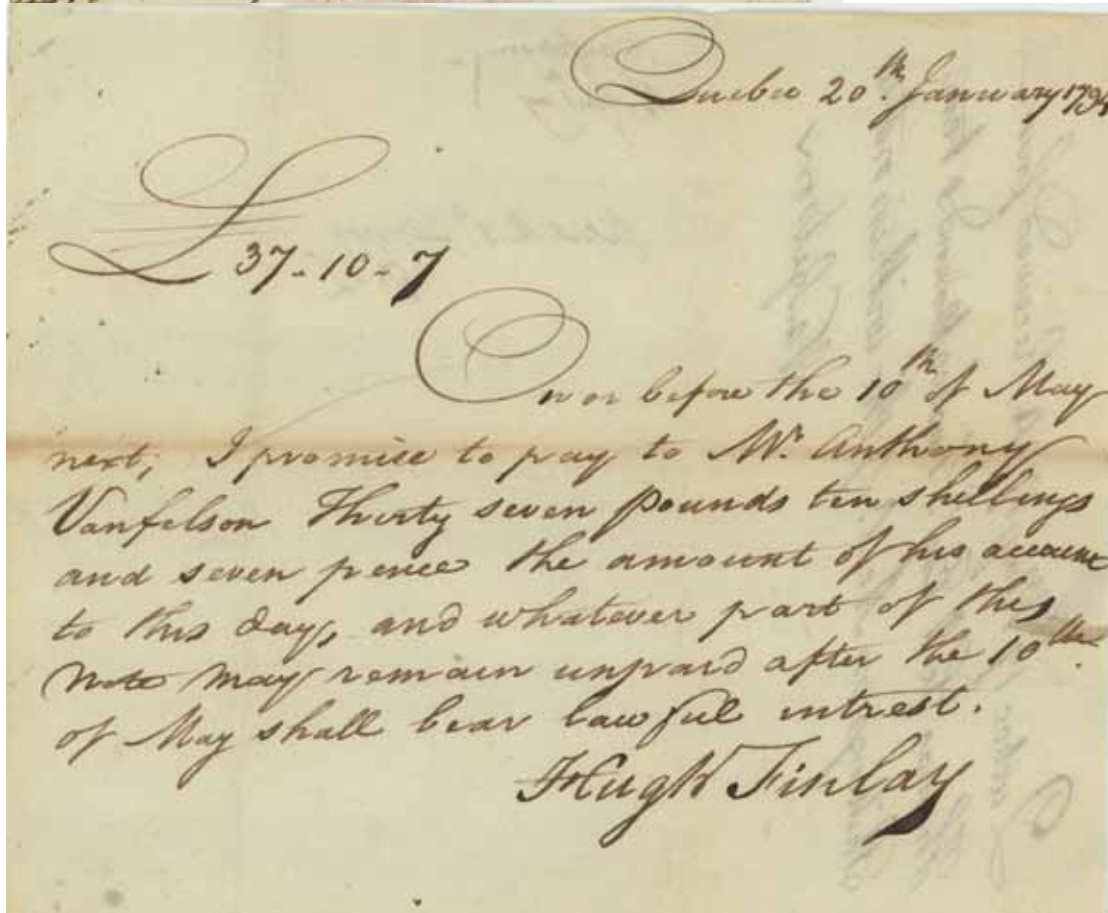 Quebec 20th. January 179
£ 37-10-7
On or before the 10th of May
next, I promise to pay to Mr. Anthony
Vanfelson Thirty seven pounds ten shillings
and seven pence the amount of his account
to this day, and whatever part of this
note may remain unpaid after the 10th.
of May shall bear lawful intrest.
Hugh Finlay